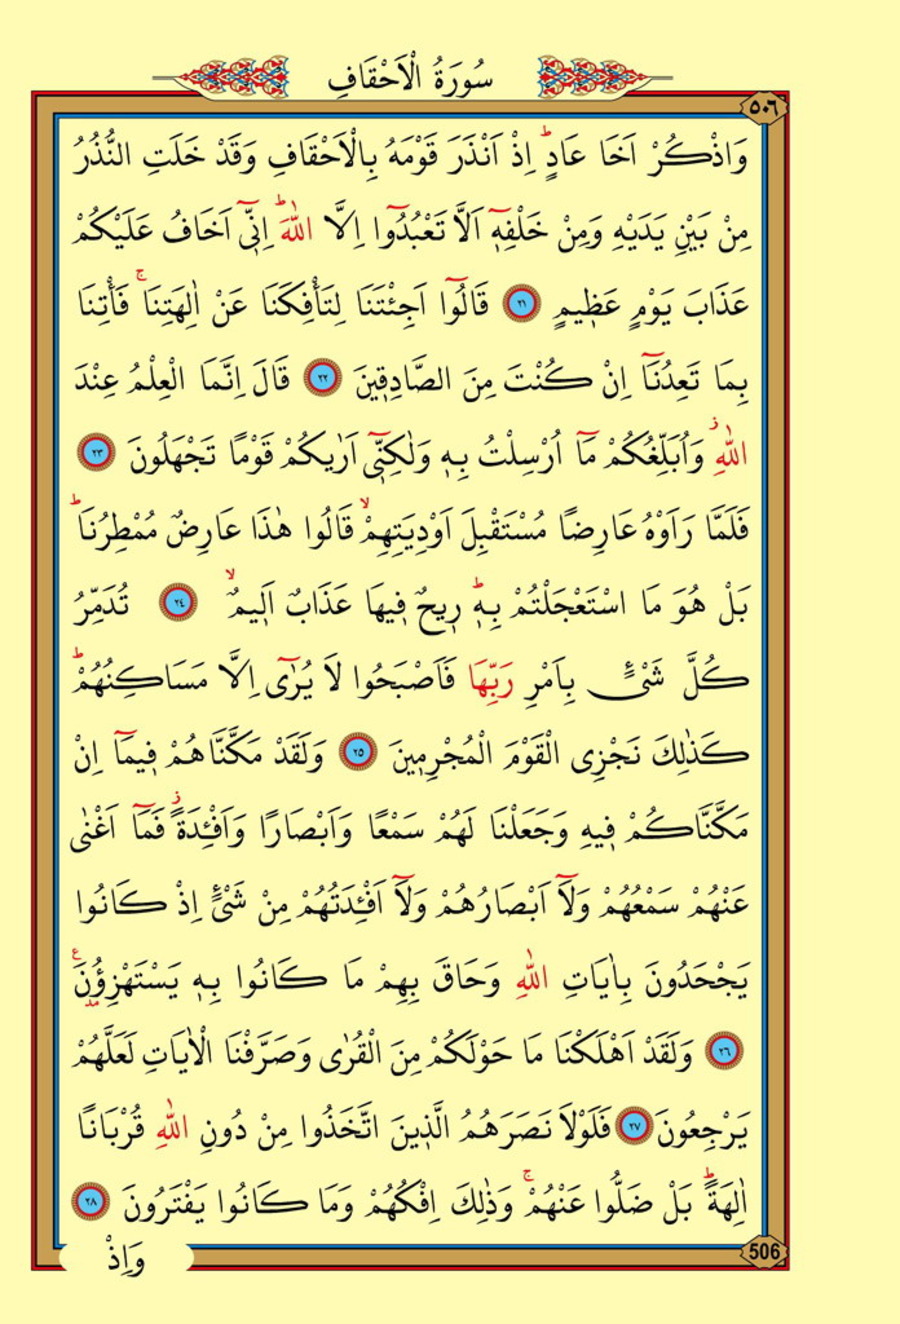 سُورَةُ الْاَحْقَافِ
٥٠٦
وَاذْكُرْ اَخَا عَادٍۜ اِذْ اَنْذَرَ قَوْمَهُ بِالْاَحْقَافِ وَقَدْ خَلَتِ النُّذُرُ
مِنْ بَيْنِ يَدَيْهِ وَمِنْ خَلْفِه۪ٓ اَلَّا تَعْبُدُٓوا اِلَّا اللّٰهَۜ اِنّ۪ٓي اَخَافُ عَلَيْكُمْ
عَذَابَ يَوْمٍ عَظ۪يمٍ ﴿٢١﴾ قَالُٓوا اَجِئْتَنَا لِتَأْفِكَنَا عَنْ اٰلِهَتِنَاۚ فَأْتِنَا
بِمَا تَعِدُنَٓا اِنْ كُنْتَ مِنَ الصَّادِق۪ينَ ﴿٢٢﴾ قَالَ اِنَّمَا الْعِلْمُ عِنْدَ
اللّٰهِۘ وَاُبَلِّغُكُمْ مَٓا اُرْسِلْتُ بِه۪ وَلٰكِنّ۪ٓي اَرٰيكُمْ قَوْمًا تَجْهَلُونَ ﴿٢٣﴾
فَلَمَّا رَاَوْهُ عَارِضًا مُسْتَقْبِلَ اَوْدِيَتِهِمْۙ قَالُوا هٰذَا عَارِضٌ مُمْطِرُنَاۜ
بَلْ هُوَ مَا اسْتَعْجَلْتُمْ بِه۪ۜ ر۪يحٌ ف۪يهَا عَذَابٌ اَل۪يمٌۙ ﴿٢٤﴾ تُدَمِّرُ
كُلَّ شَيْءٍ بِاَمْرِ رَبِّهَا فَاَصْبَحُوا لَا يُرٰٓى اِلَّا مَسَاكِنُهُمْۜ
كَذٰلِكَ نَجْزِي الْقَوْمَ الْمُجْرِم۪ينَ ﴿٢٥﴾ وَلَقَدْ مَكَّنَّاهُمْ ف۪يمَٓا اِنْ
مَكَّنَّاكُمْ ف۪يهِ وَجَعَلْنَا لَهُمْ سَمْعًا وَاَبْصَارًا وَاَفْـِٔدَةًۘ فَمَٓا اَغْنٰى
عَنْهُمْ سَمْعُهُمْ وَلَٓا اَبْصَارُهُمْ وَلَٓا اَفْـِٔدَتُهُمْ مِنْ شَيْءٍ اِذْ كَانُوا
يَجْحَدُونَ بِاٰيَاتِ اللّٰهِ وَحَاقَ بِهِمْ مَا كَانُوا بِه۪ يَسْتَهْزِؤُ۫نَ۟
﴿٢٦﴾ وَلَقَدْ اَهْلَكْنَا مَا حَوْلَكُمْ مِنَ الْقُرٰى وَصَرَّفْنَا الْاٰيَاتِ لَعَلَّهُمْ
يَرْجِعُونَ ﴿٢٧﴾ فَلَوْلَا نَصَرَهُمُ الَّذ۪ينَ اتَّخَذُوا مِنْ دُونِ اللّٰهِ قُرْبَانًا
اٰلِهَةًۜ بَلْ ضَلُّوا عَنْهُمْۚ وَذٰلِكَ اِفْكُهُمْ وَمَا كَانُوا يَفْتَرُونَ ﴿٢٨﴾
506
وَاِذْ